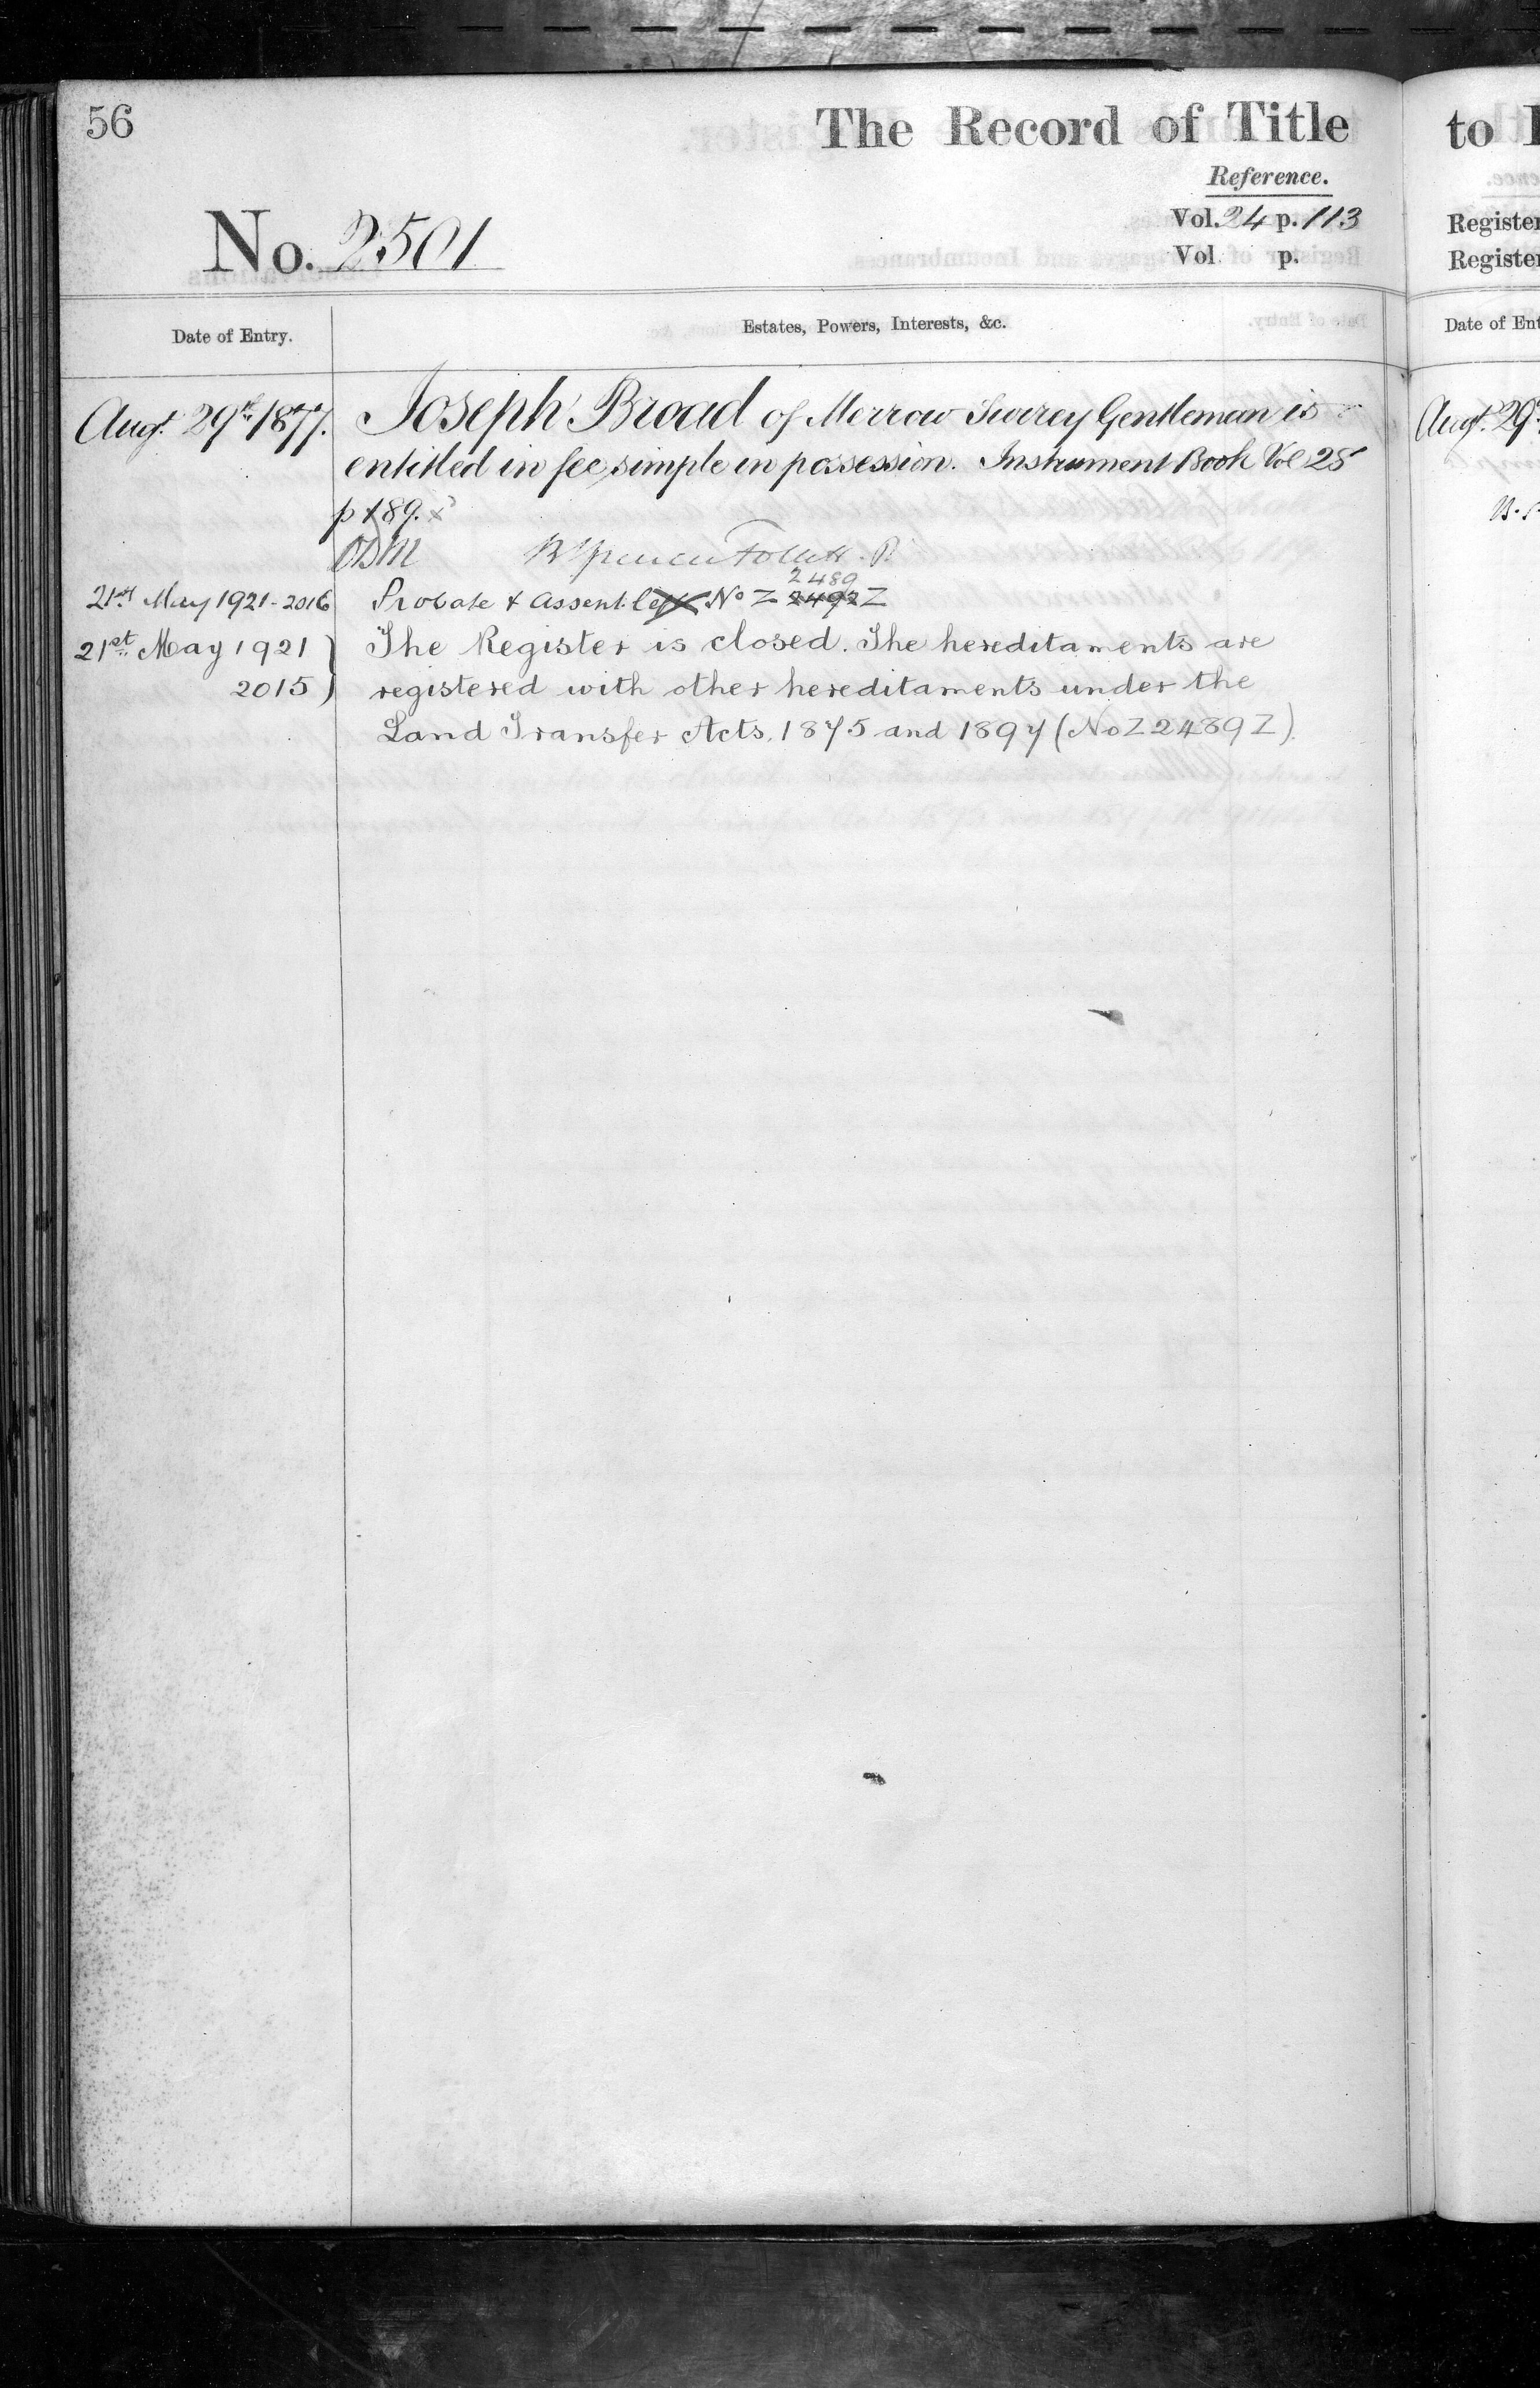 56
The Record of Title
Reference.
No. 2501
Vol. 24 p. 113
Vol. p.
Date of Entry. Estates, Powers, Interests, &c.
Augt. 29th 1877. Joseph Broad of Merrow Surrey Gentleman is
entitled in fee simple in possession. Instrument Book Vol 25
p 189.
Spencer Follett. R.
2489
21st May 1921-2016 Probate & Assent left No Z 2492 Z
21st May 1921 The Register is closed. The hereditaments are
2015 registered with other hereditaments under the
Land Transfer Acts. 1875 and 1897 (No Z 2489 Z).
to
Register
Register
Date of Ent
Augt. 29